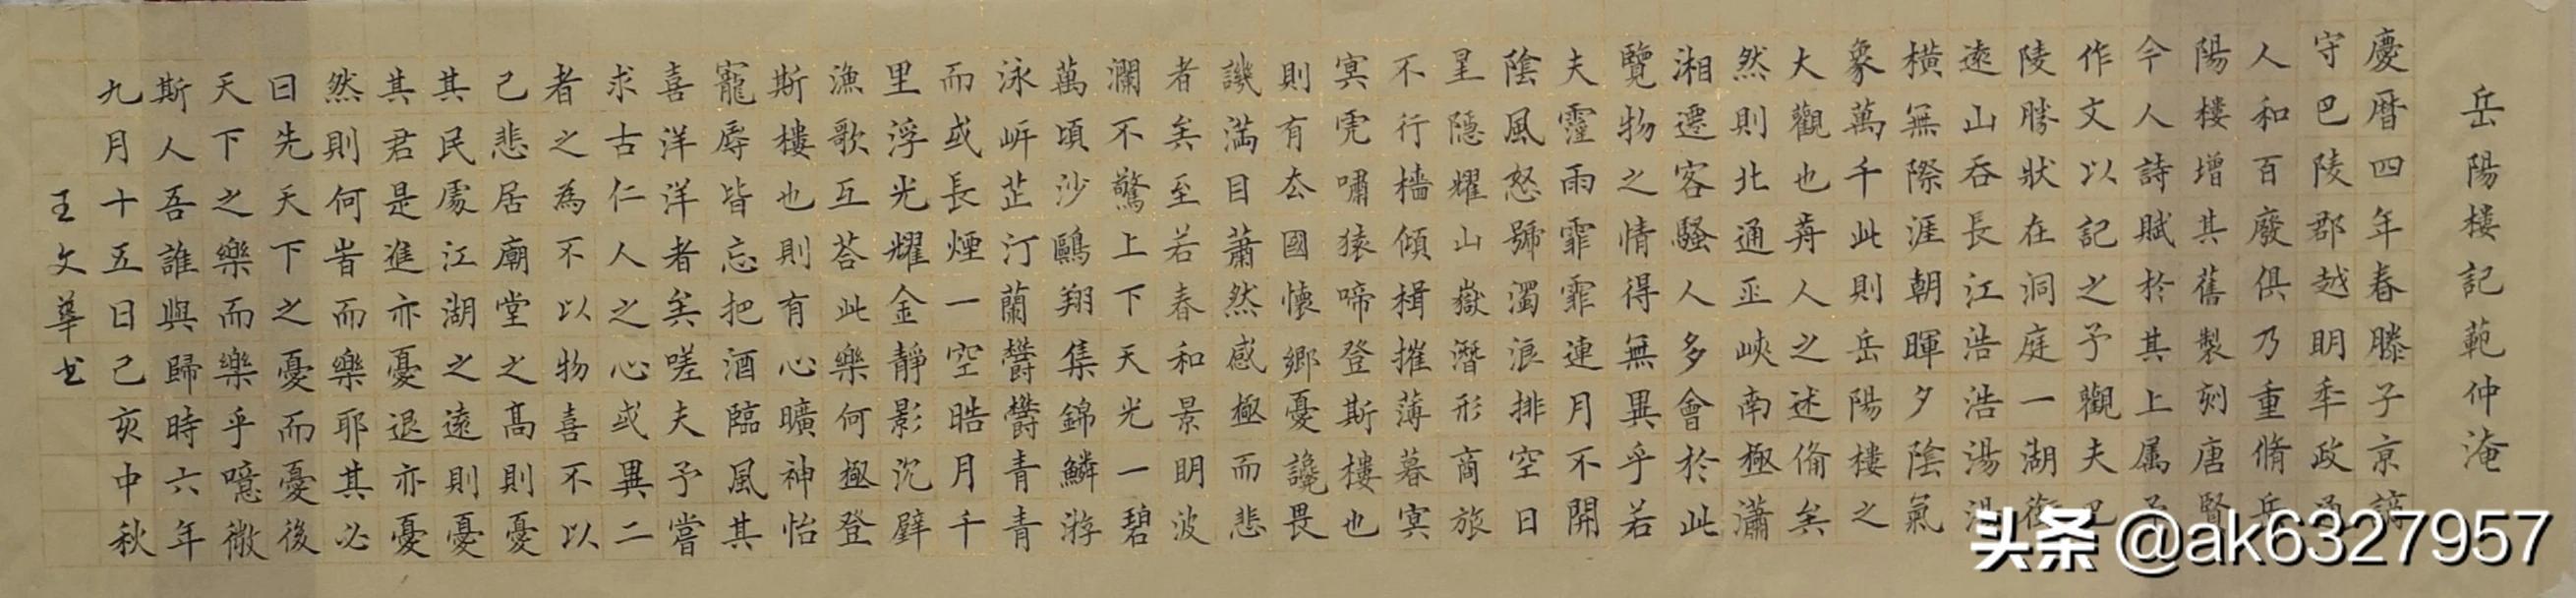 岳陽樓記範仲淹
慶暦四年春滕子京謫
守巴陵郡越明秊政通
人和百廢俱乃重脩岳
陽樓增其舊製刻唐賢
今人詩賦於其上属予
作文以記之予觀夫巴
陵勝狀在洞庭一湖銜
遠山吞長江浩浩湯湯
橫無際涯朝暉夕陰氣
象萬千此則岳陽樓之
大觀也歬人之述俻矣
然則北通巫峽南極瀟
湘遷客騷人多會於此
覽物之情得無異乎若
夫霪雨霏霏連月不開
陰風怒號濁浪排空日
星隱耀山嶽潛形商旅
不行檣傾楫摧薄暮冥
冥虎嘯猿啼登斯樓也
則有去國懷鄉憂讒畏
譏滿目蕭然感極而悲
者矣至若春和景明波
瀾不驚上下天光一碧
萬頃沙鷗翔集錦鱗游
泳岍芷汀蘭欝欝青青
而或長煙一空皓月千
里浮光耀金靜影沉璧
漁歌互荅此樂何極登
斯樓也則有心曠神怡
寵辱皆忘把酒臨風其
喜洋洋者矣嗟夫予嘗
求古仁人之心或異二
者之為不以物喜不以
己悲居廟堂之高則憂
其民處江湖之遠則憂
其君是進亦憂退亦憂
然則何旹而樂耶其必
曰先天下之憂而憂後
天下之樂而樂乎噫微
斯人吾誰與歸時六年
九月十五日己亥中秋
王文華书
头条 @ak6327957